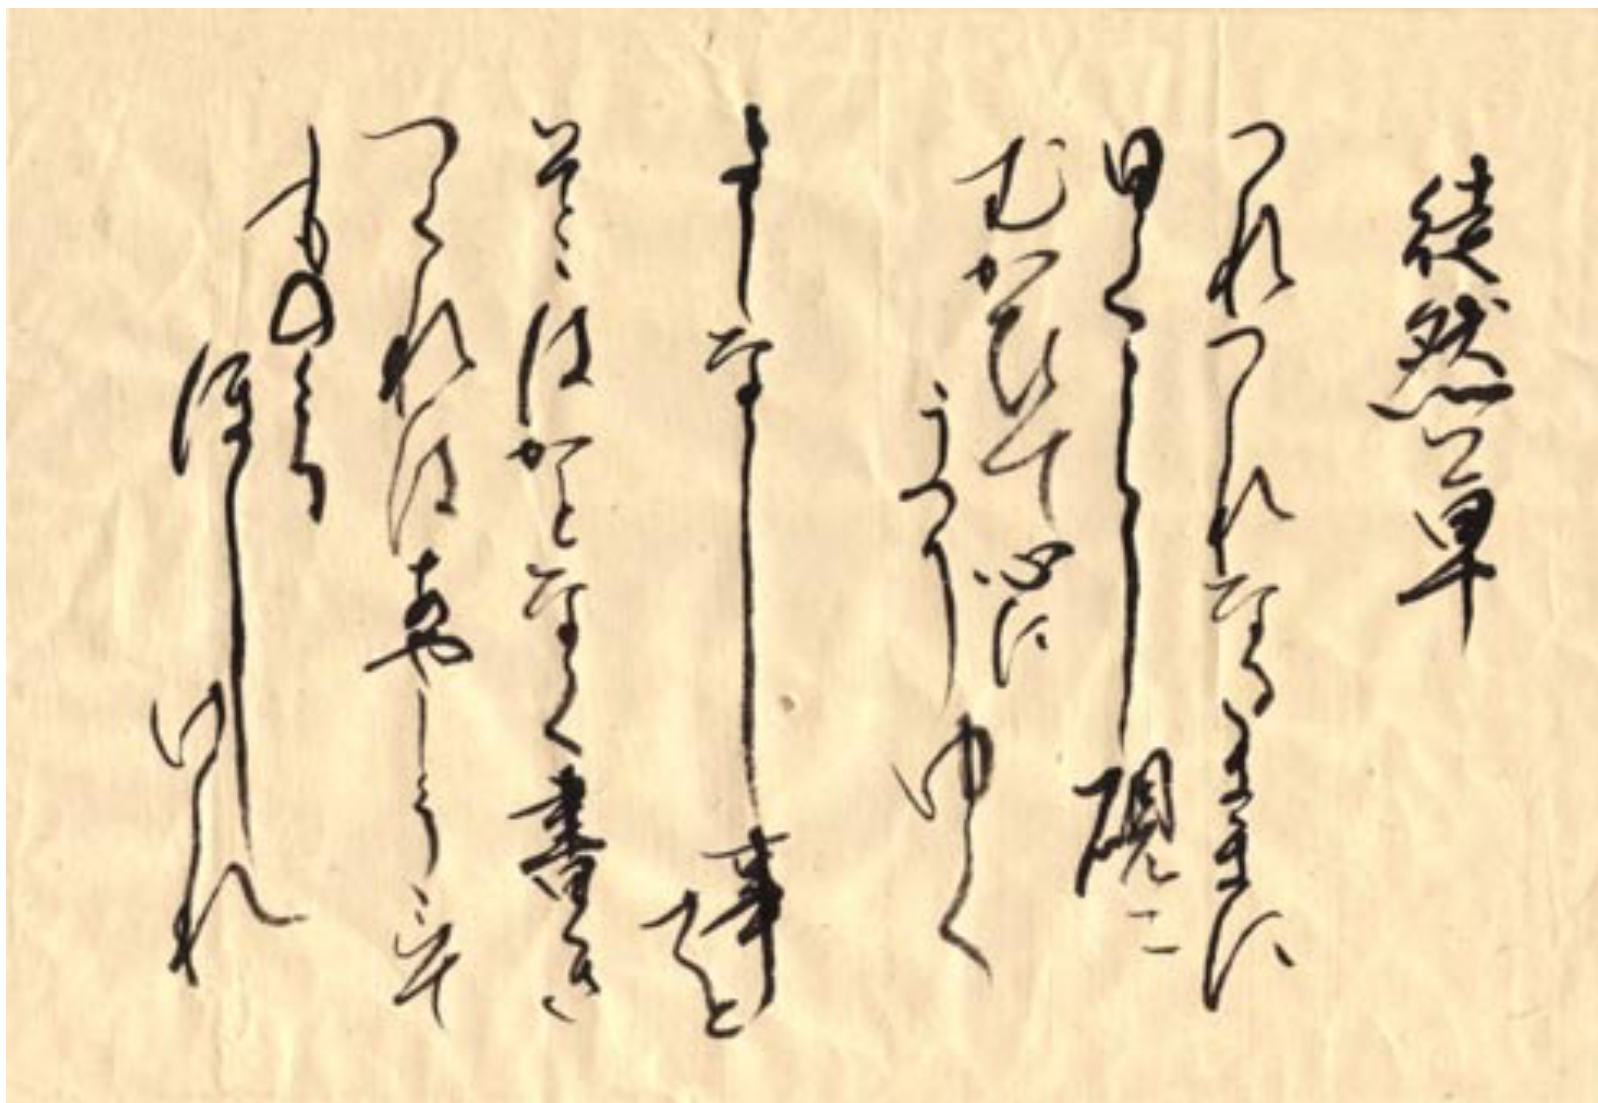 徒然草
つれつれなるまゝに
日くらし硯に
むかひて心に
うつりゆく
よしなし事を
そこはかとなく書き
つくれはあやしうこそ
ものくる
ほしけれ